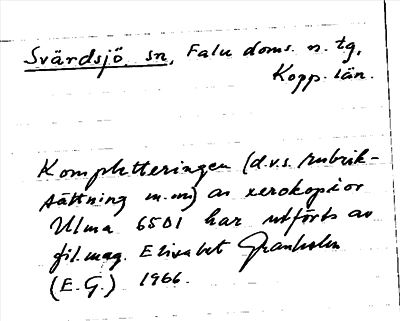 Svärdsjö sn, Falu doms. n. tg,
Kopp. län.
Kompletteringen (d.v.s. rubrik-
sättning m.m) av xerokopior
Ulma 6501 har utförts av
fil.mag. Elisabet Granholm
(E.G.) 1966.